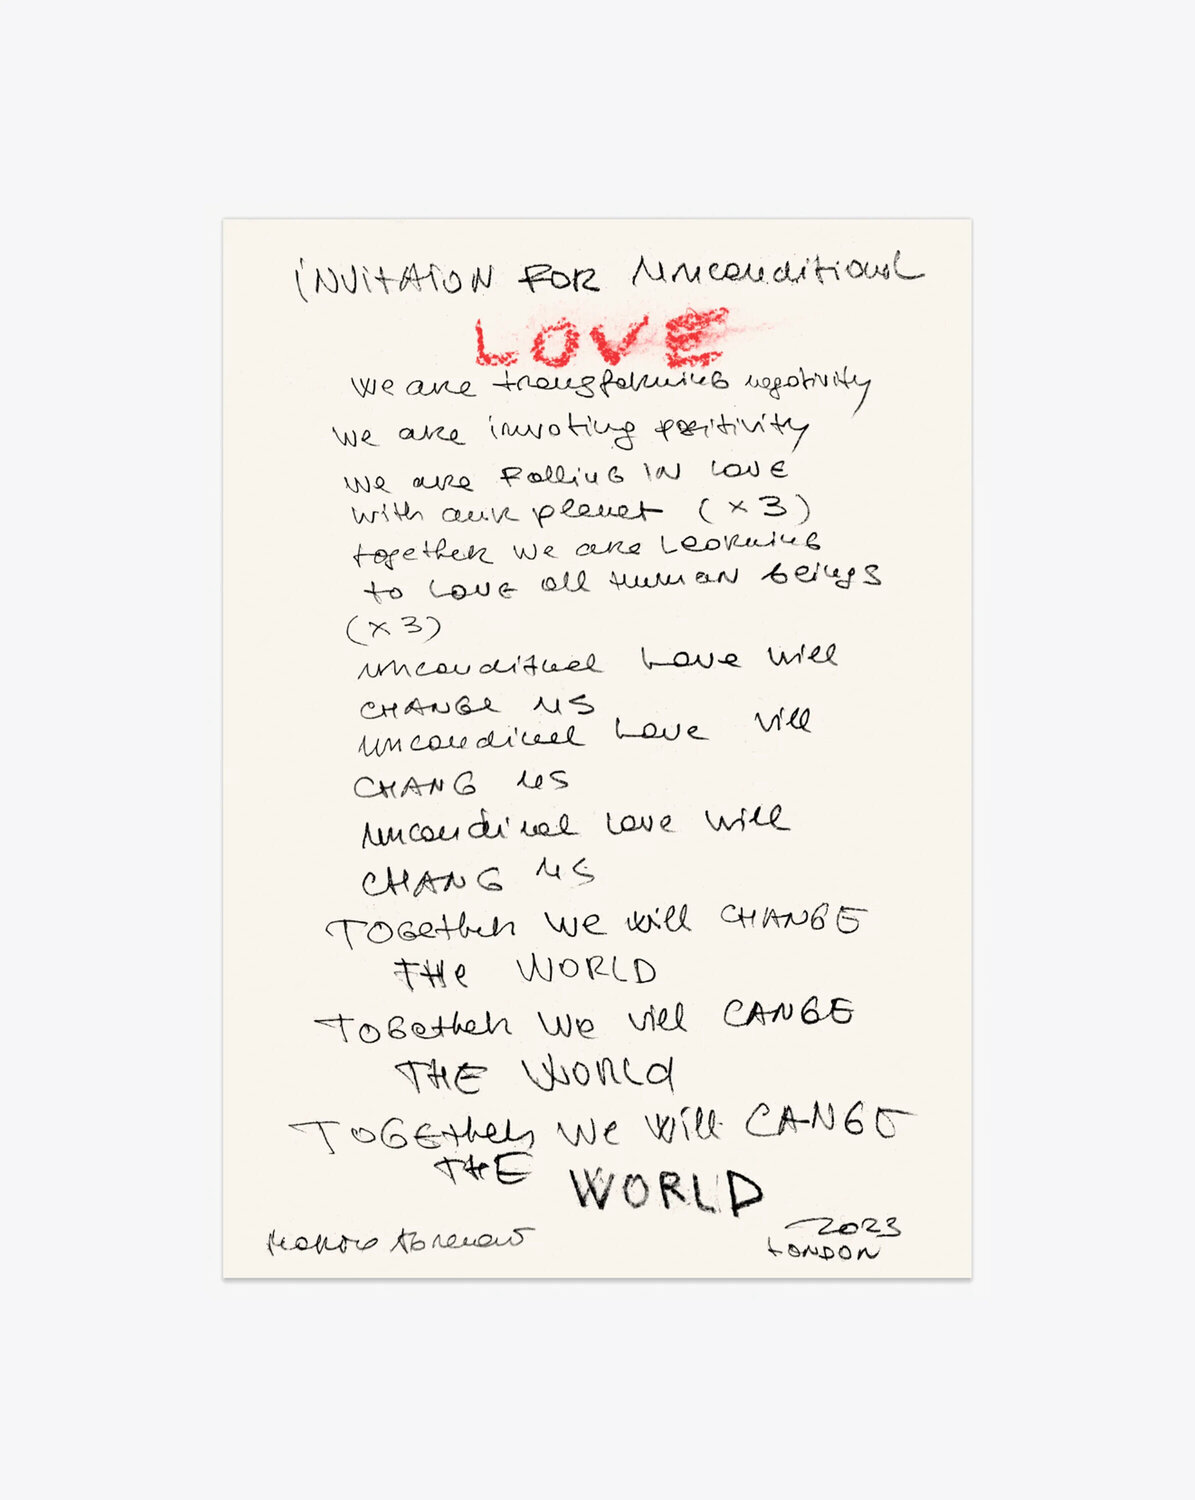 iNVitAiON FOR unconditional
LOVE
we are transforming negativity
we are invoting positivity
we are Falling IN LOVE
with our planet (x 3)
together we are Learning
to LOVE all human beings
(x 3)
uncondituel Love will
CHANGe us
uncondinel Love vill
CHANG us
uncondinal Love will
CHANG us
TOGether We will CHANGE
THe WORLD
TOGether We vill CANGE
THE WORLd
TOGEther We Will CANGE
THE WORLD
Marina Abramović 2023
LONDON